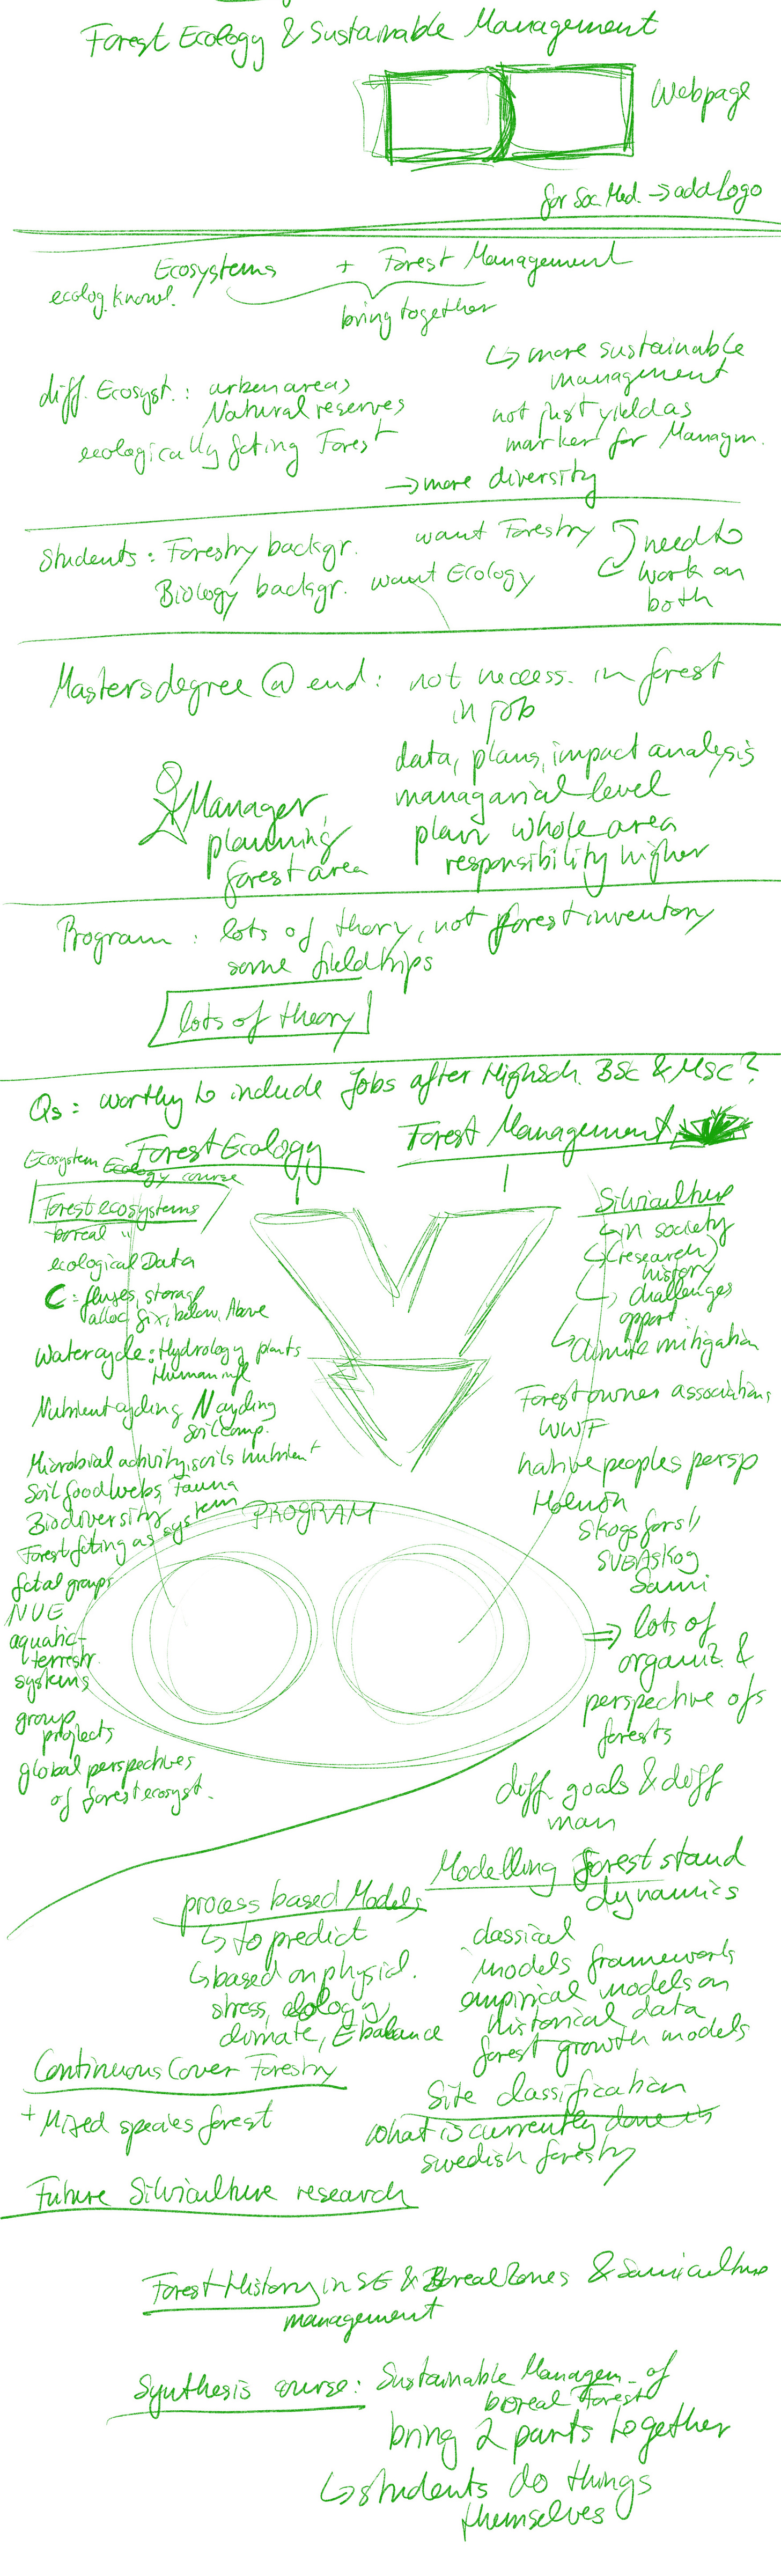 Forest Ecology & Sustainable Management
Webpage
for Soc. Med. → add Logo
Ecosystems + Forest Management
ecolog. knowl.
bring together
↳ more sustainable
management
diff. Ecosyst.: urban areas
Natural reserves
not just yield as
marker for Managm.
ecologically fcting Forest
→ more diversity
Students: Forestry backgr. want Forestry
Biology backgr. want Ecology
need to
work on
both
Mastersdegree @ end: not necess. in forest
in job
data, plans, impact analysis
managarial level
plan whole area
responsibility higher
Manager,
planning
forest area
Program: lots of theory, not forest inventory
some fieldtrips
lots of theory
Qs: worthy to include Jobs after Highsch. BSc & MSc?
Forest Ecology
Forest Management
Ecosystem Ecology course
Forest ecosystems
boreal "
ecological Data
C: fluxes, storage
alloc, fix, below, Above
Watercycle: Hydrology plants
Human infl
Nutrient cycling N cycling
soil comp.
Microbial activity, soils nutrient
Soil foodwebs, Fauna
Biodiversity
Forest fcting as system
fctal groups
NUE
aquatic-
terrestr.
systems
group
projects
global perspectives
of forest ecosyst.
Silviculture
↳ in society
↳ (research)
history
↳ challenges
opport.
↳ Climate mitigation
Forest owner associations,
WWF
native peoples persp
Holmen
Skogsforsk
SVEASkog
Sami
⇒ lots of
organiz. &
perspective ofs
forests
diff. goals & diff
man
PROGRAM
Modelling forest stand
dynamics
process based Models
↳ to predict
↳ based on physiol.
stress, ecology,
climate, E balance
classical
models frameworks
empirical models on
historical data
forest growth models
Continuous Cover Forestry
+ Mixed species forest
Site classification
what is currently done in
swedish forestry
Future Silviculture research
Forest History in SE & Boreal Zones & Sami culture
management
Synthesis course: Sustainable Managem. of
boreal Forest
bring 2 parts together
↳ students do things
themselves